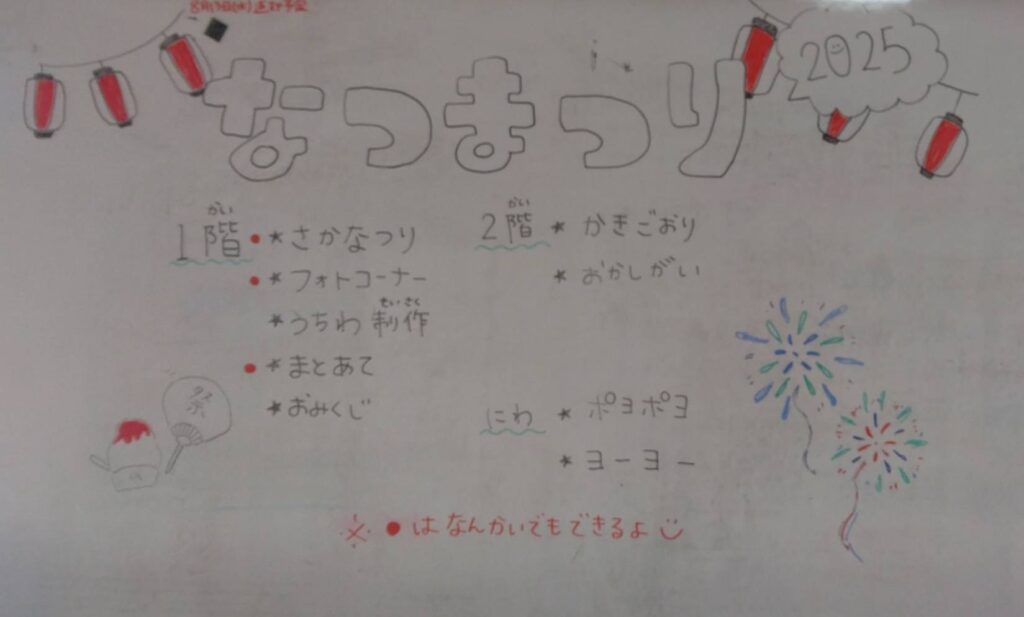 なつまつり
2025
1階 かい
● ★ さかなつり
● ★ フォトコーナー
★ うちわ制作 せいさく
● ★ まとあて
★ おみくじ
2階 かい
★ かきごおり
★ おかしがい
にわ
★ ポヨポヨ
★ ヨーヨー
祭
※ ● は なんかいでもできるよ